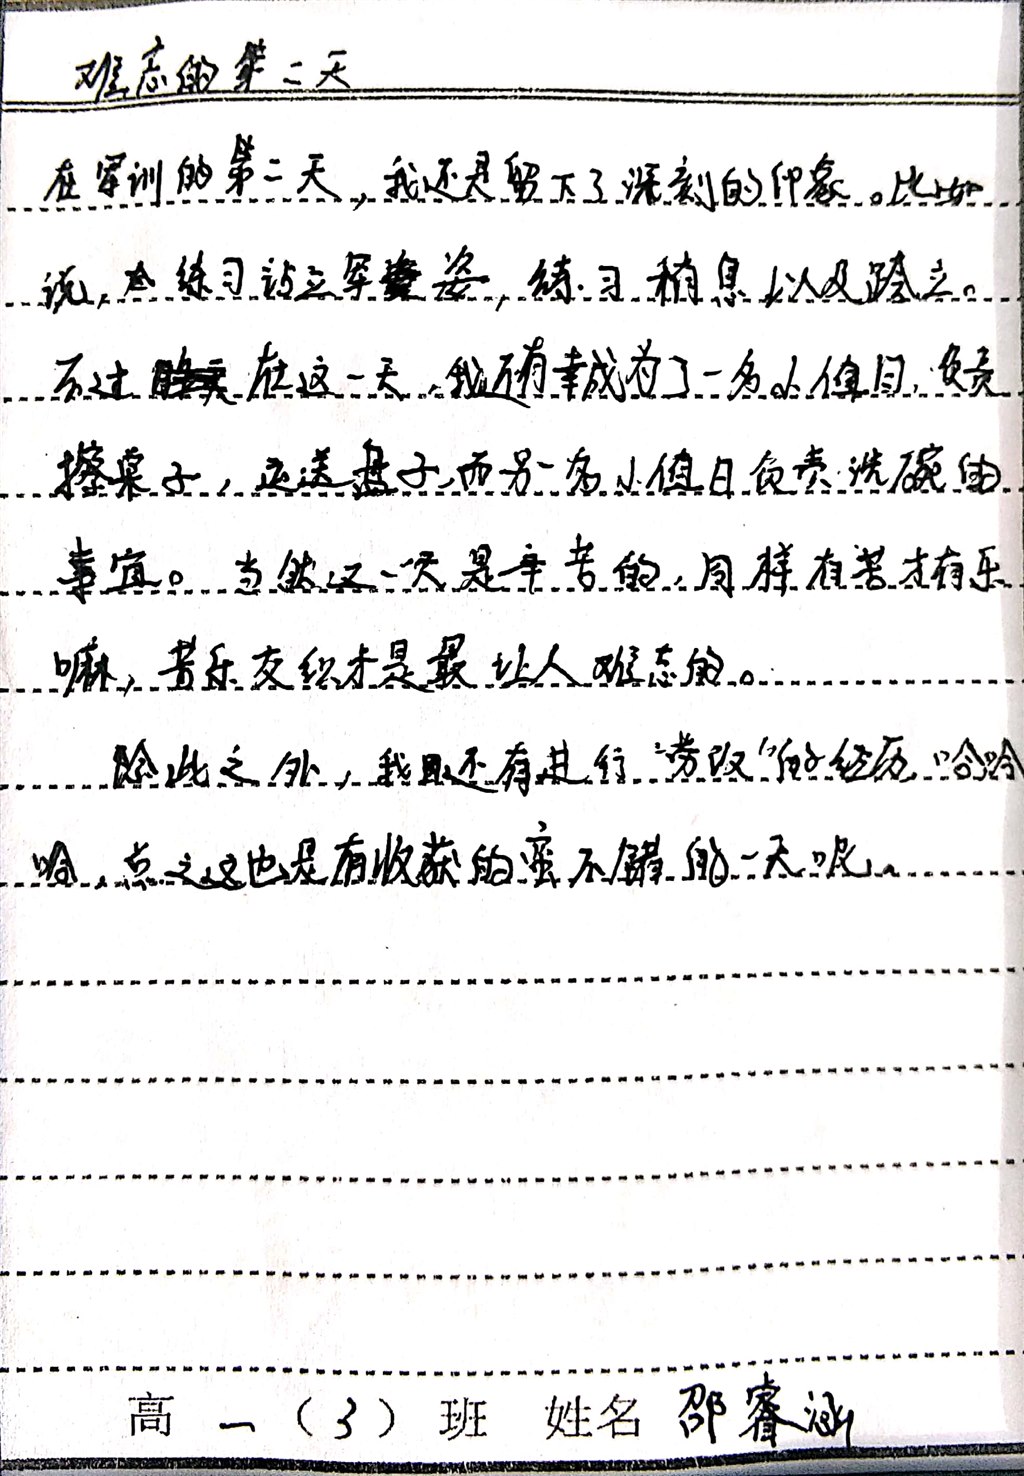 难忘的第二天
在军训的第二天，我还是留下了深刻的印象。比如
说，练习站立军姿，练习稍息以及跨立。
不过在这一天，我还有幸成为了一名小值日，负责
擦桌子，运送盘子，而另一名小值日负责洗碗的
事宜。当然这一天是辛苦的，同样有苦才有乐
嘛，苦乐交织才是最让人难忘的。
除此之外，我还有进行“劳改”的经历，哈哈
哈，总之这也是有收获的蛮不错的一天呢。
高一（3）班 姓名 邵睿涵